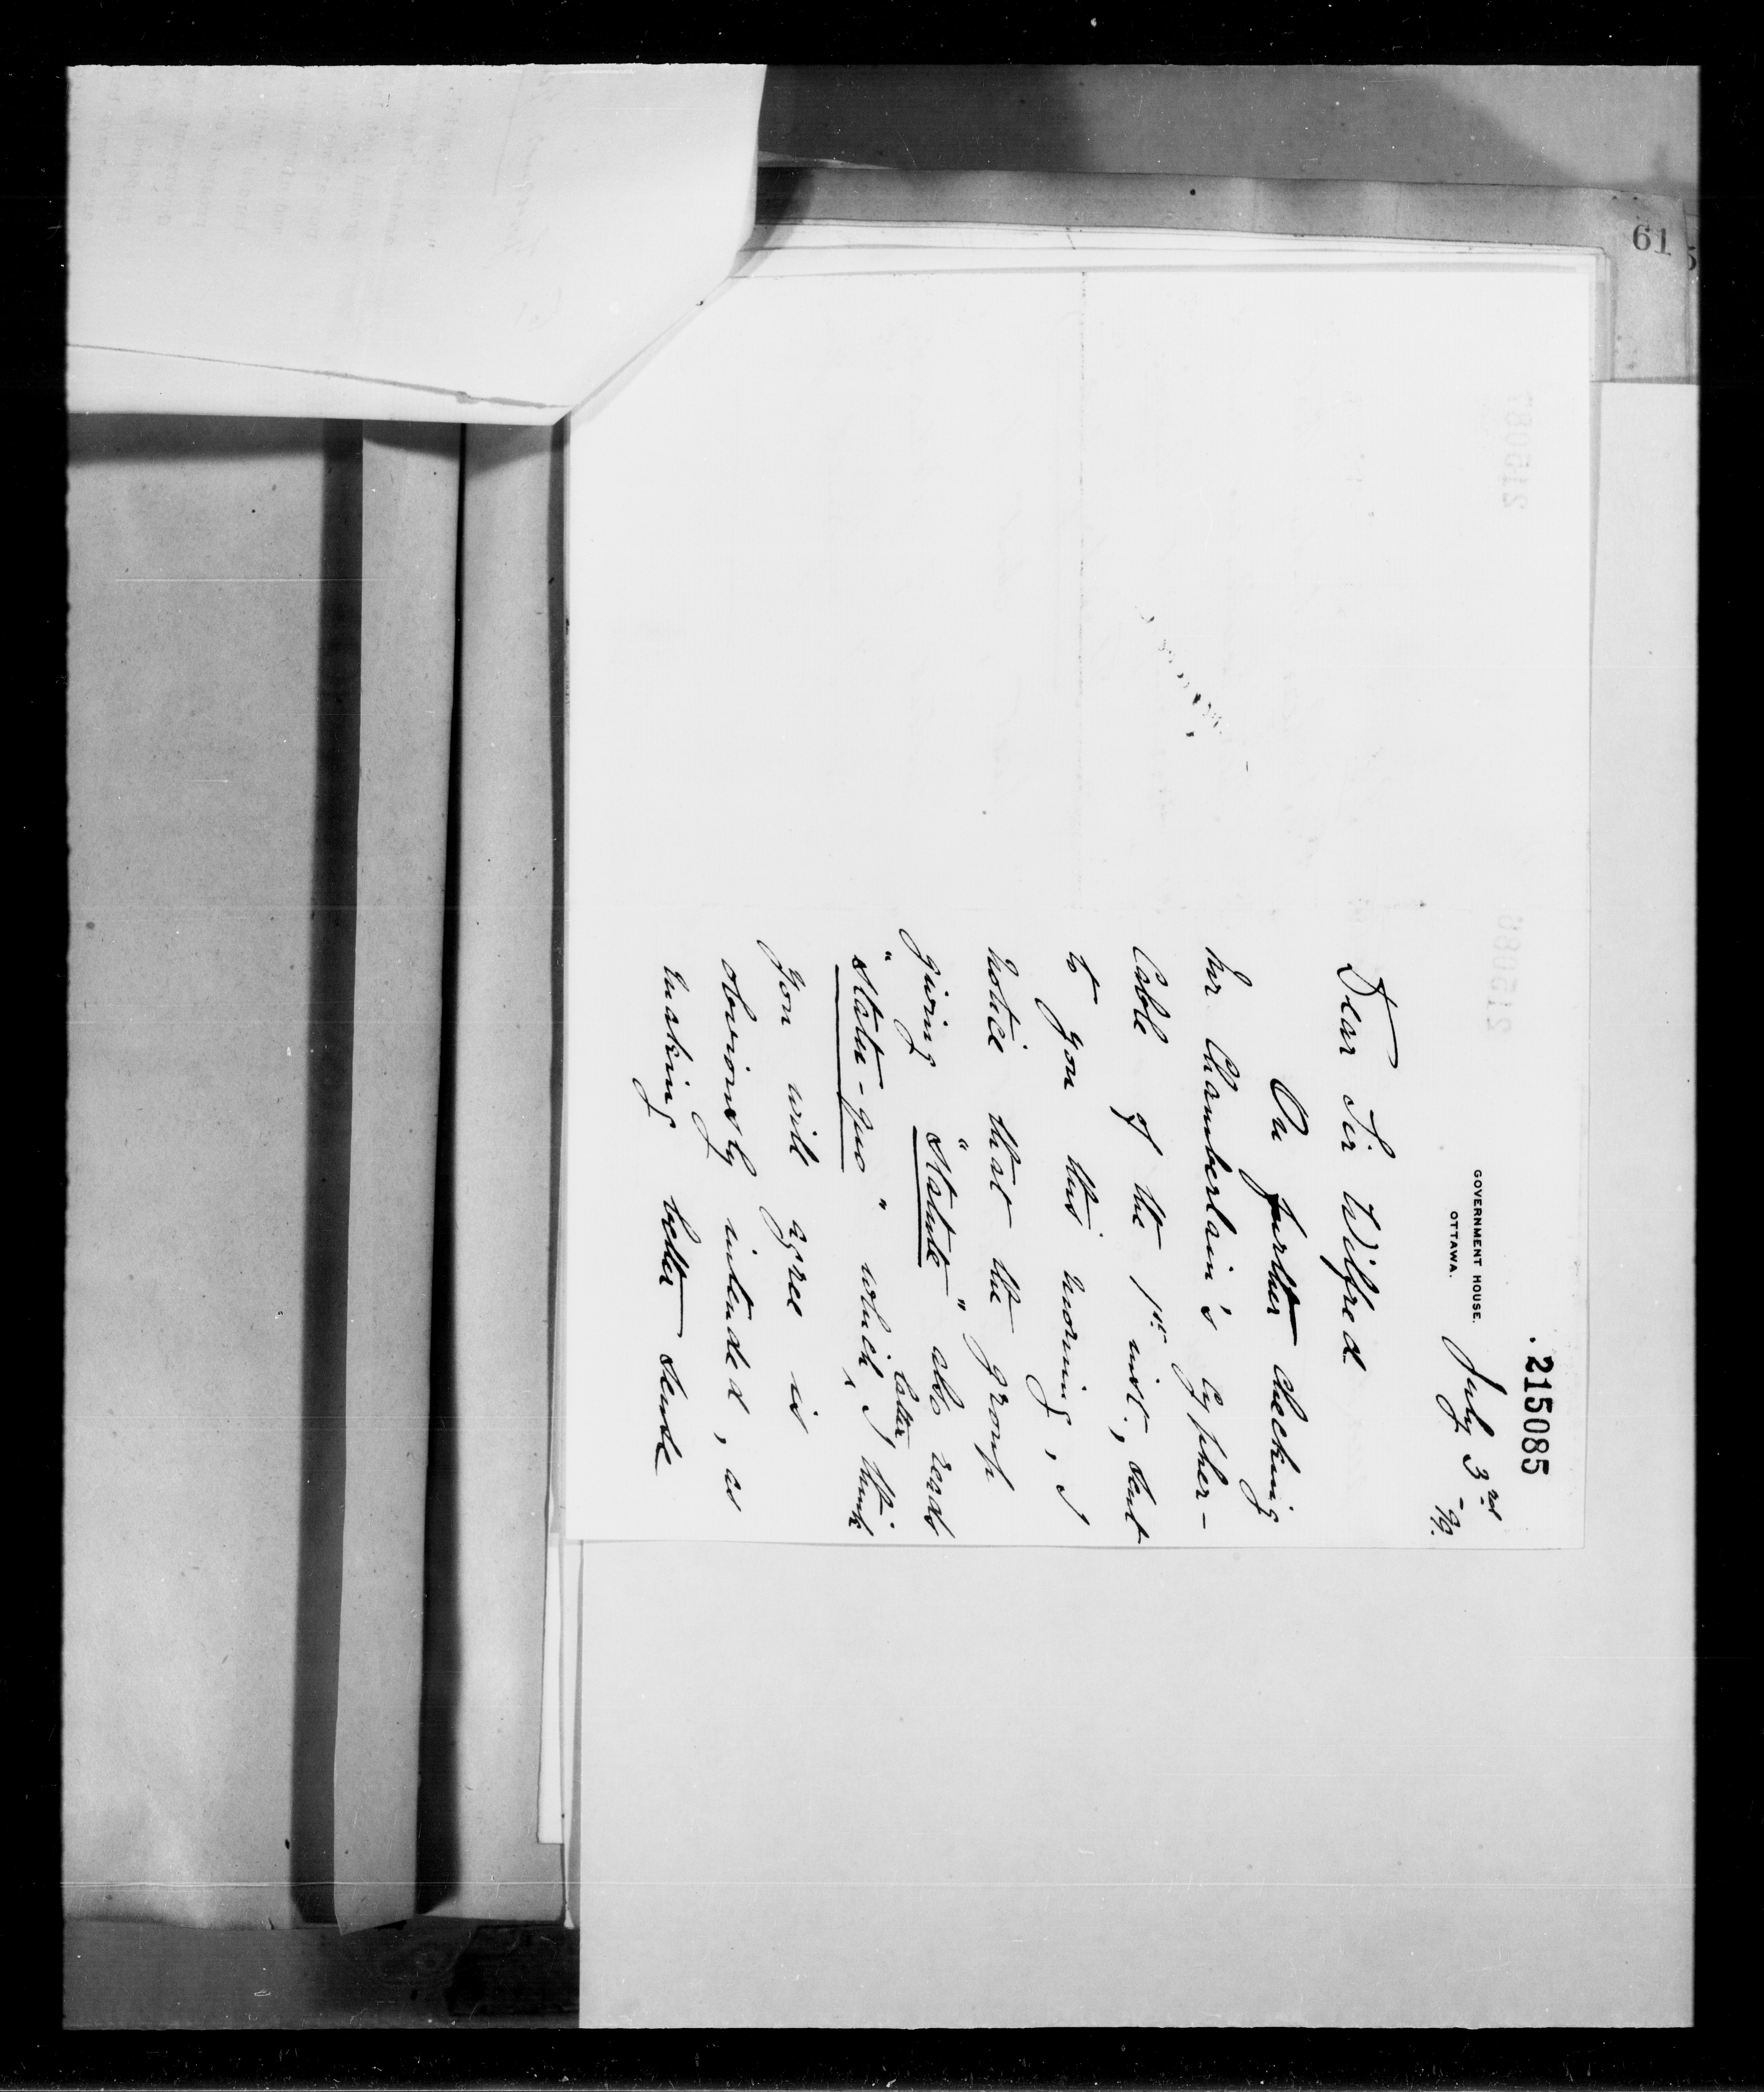 61
.215085
GOVERNMENT HOUSE.
OTTAWA.
July 3rd -99.
Dear Sir Wilfred
On further checking
Mr Chamberlain's cypher-
Cable of the 1st inst, sent
to you this morning, I
notice that the group
giving "Statute" also reads
"Statu-quo" which, latter I think
you will agree is
obviously intended, as
making better sense
215086
215087